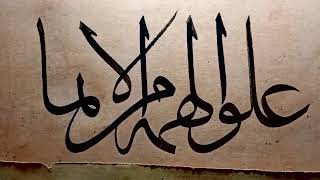 علو الهمة من الايما